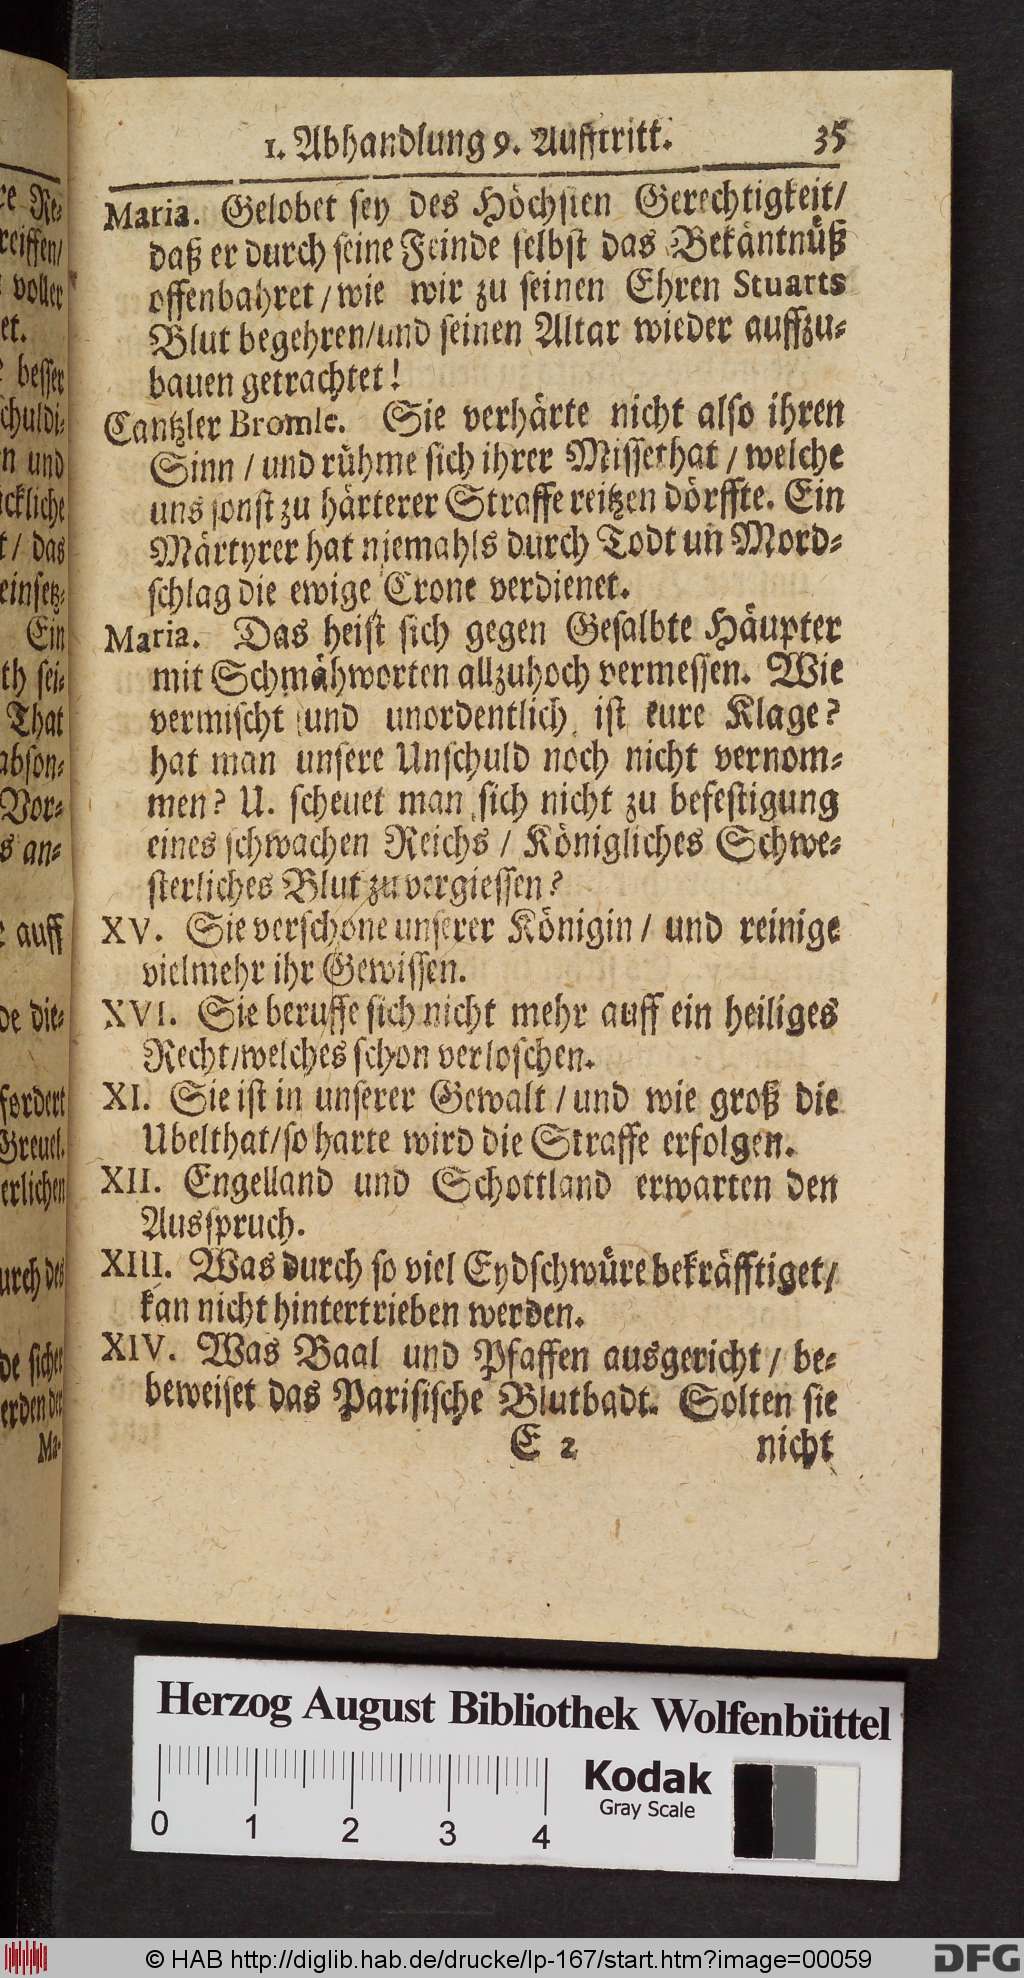 1. Abhandlung 9. Aufftritt. 35
Maria. Gelobet sey des Höchsten Gerechtigkeit/
daß er durch seine Feinde selbst das Bekäntnüß
offenbahret/wie wir zu seinen Ehren Stuarts
Blut begehren/und seinen Altar wieder auffzu-
bauen getrachtet!
Cantzler Bromle. Sie verhärte nicht also ihren
Sinn / und rühme sich ihrer Missethat / welche
uns sonst zu härterer Straffe reitzen dörffte. Ein
Märtyrer hat niemahls durch Todt un Mord-
schlag die ewige Crone verdienet.
Maria. Das heist sich gegen Gesalbte Häupter
mit Schmähworten allzuhoch vermessen. Wie
vermischt und unordentlich ist eure Klage?
hat man unsere Unschuld noch nicht vernom-
men? U. scheuet man sich nicht zu befestigung
eines schwachen Reichs / Königliches Schwe-
sterliches Blut zu vergiessen?
XV. Sie verschone unserer Königin / und reinige
vielmehr ihr Gewissen.
XVI. Sie beruffe sich nicht mehr auff ein heiliges
Recht/welches schon verloschen.
XI. Sie ist in unserer Gewalt / und wie groß die
Ubelthat/so harte wird die Straffe erfolgen.
XII. Engelland und Schottland erwarten den
Ausspruch.
XIII. Was durch so viel Eydschwüre bekräfftiget/
kan nicht hintertrieben werden.
XIV. Was Baal und Pfaffen ausgericht / be-
beweiset das Parisische Blutbadt. Solten sie
E 2 nicht
voller
et.
besser
schuldi-
und
ückliche
t / das
einsetz-
Ein
sei-
That
abson-
Vor-
s an-
auff
die-
fordert
Greuel.
erlichen
urch des
de sicher
erden der
Ma-
Herzog August Bibliothek Wolfenbüttel
Kodak
Gray Scale
0 1 2 3 4
© HAB http://diglib.hab.de/drucke/lp-167/start.htm?image=00059
DFG